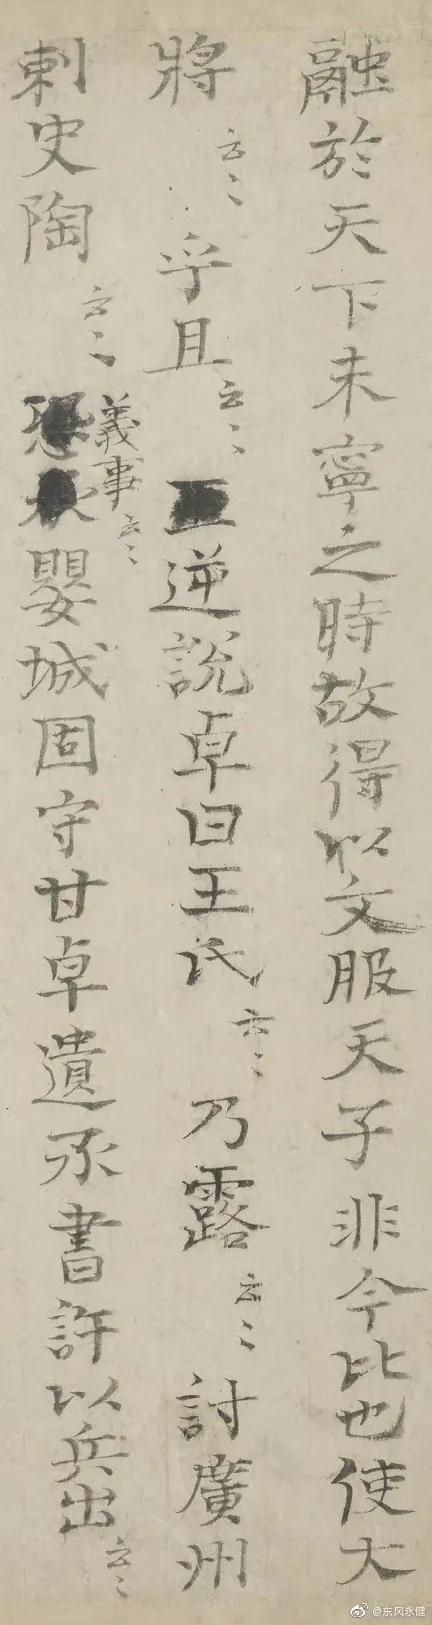 融於天下未寧之時故得以文服天子非今比也使大
將云〻乎且云〻逆說卓曰王氏云〻乃露云〻討廣州
刺史陶云〻義事云〻嬰城固守甘卓遺承書許以兵出云〻
@东风永健